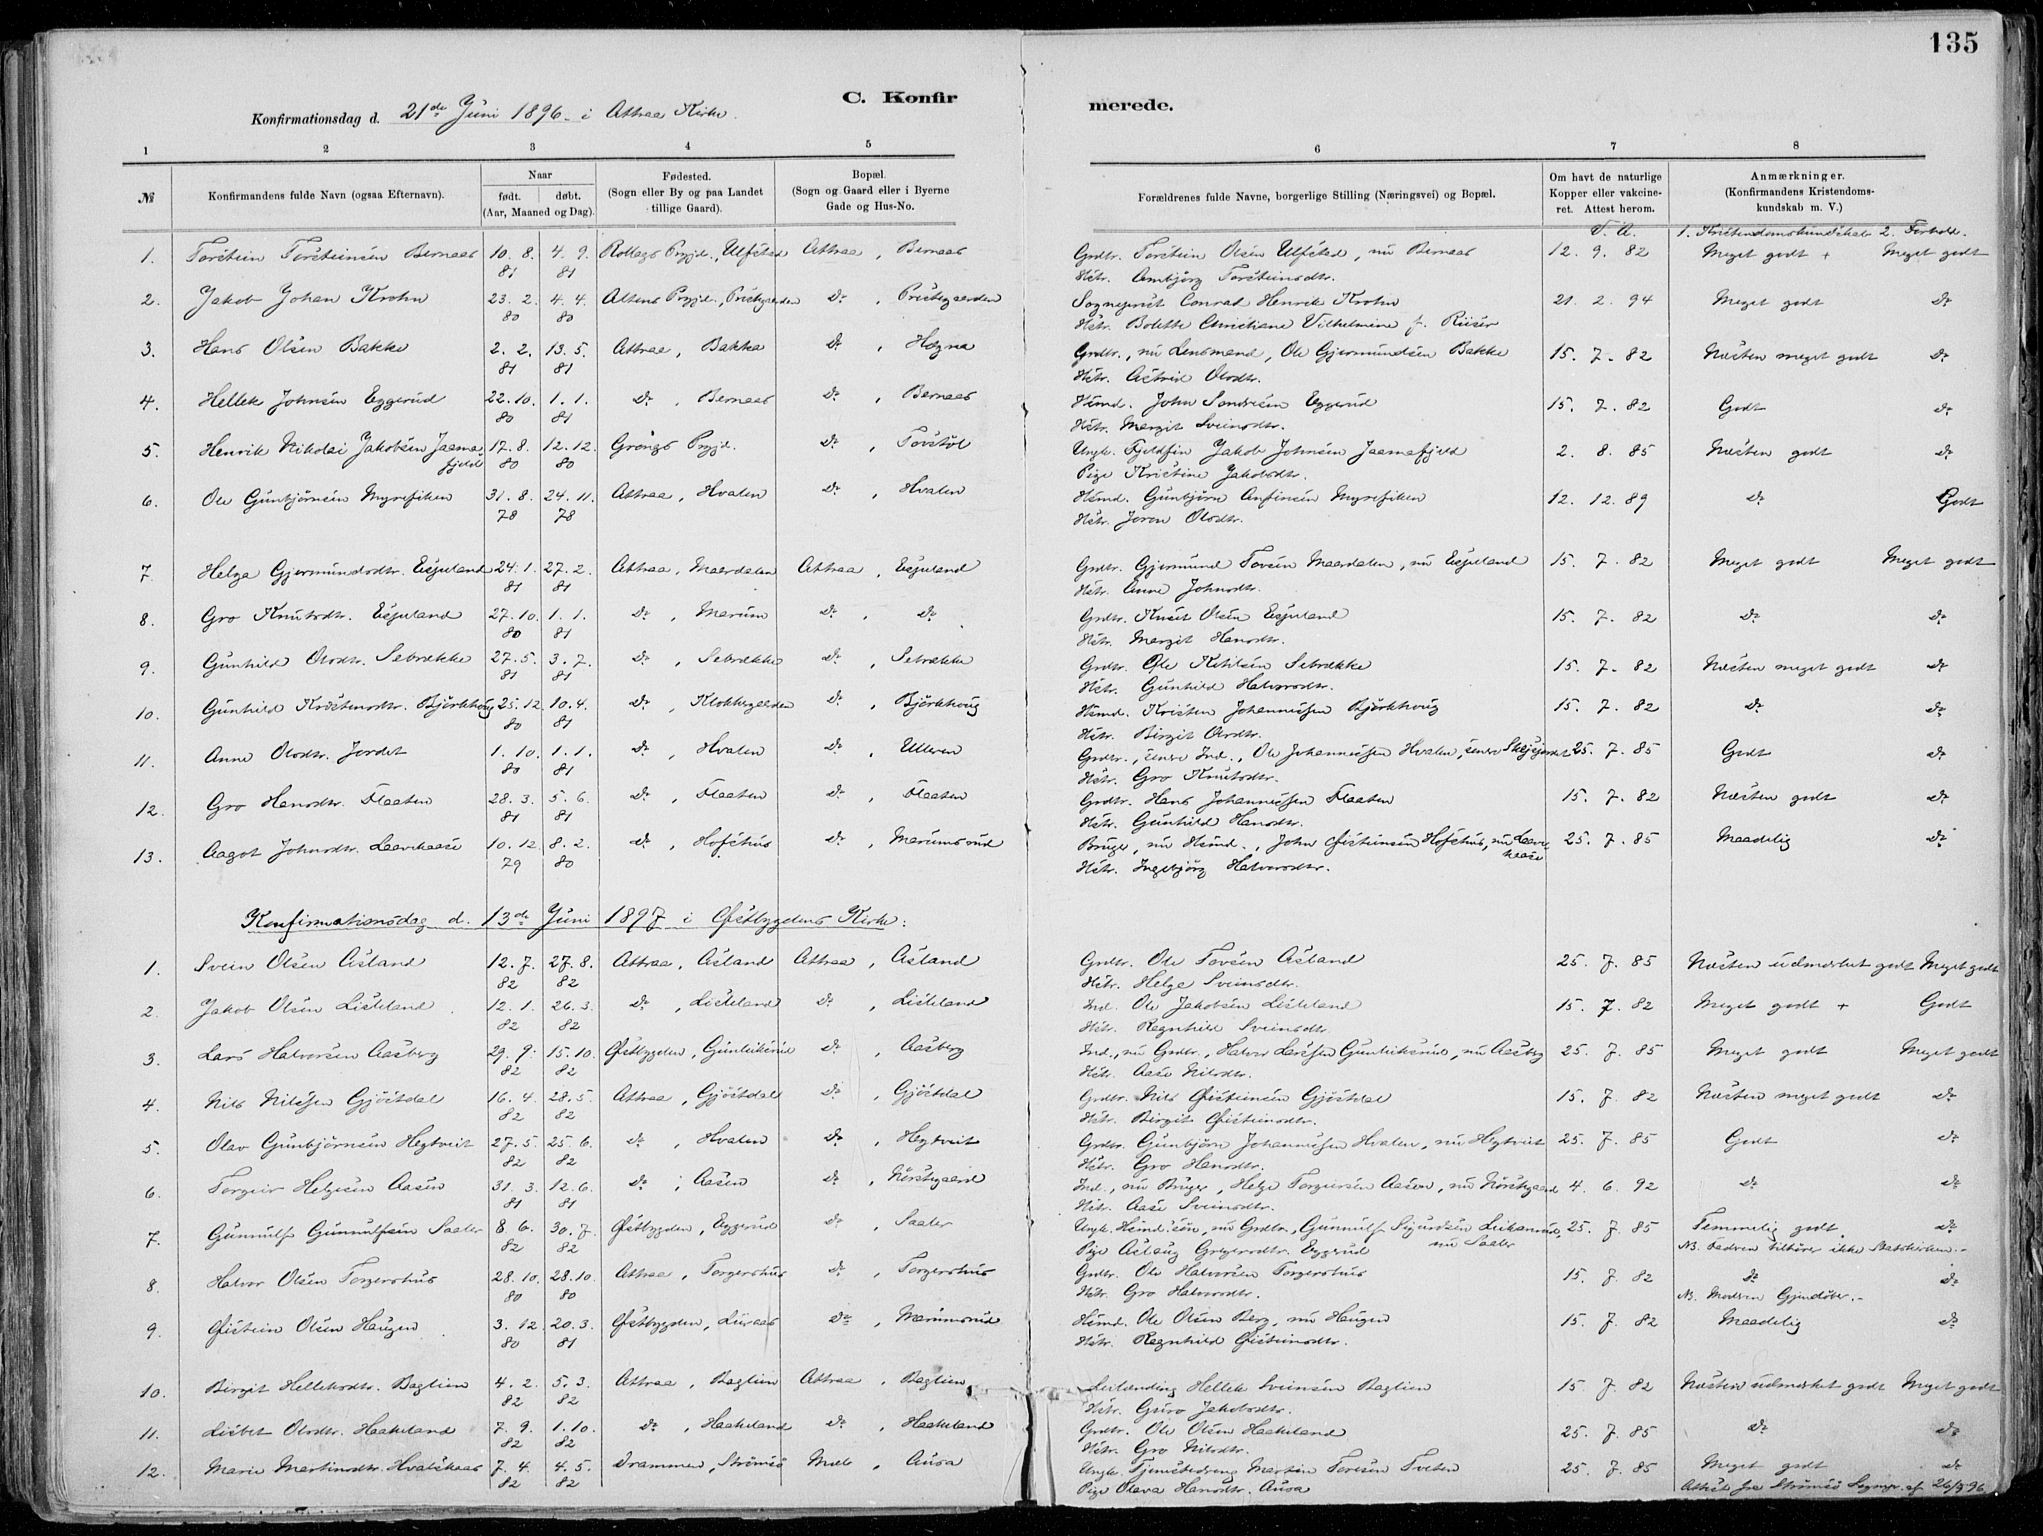 135
C. Konfirmerede.
Konfirmationsdag d. 21de Juni 1896 i Attraa Kirke.
1 2 3 4 5 6 7 8
№ Konfirmandens fulde Navn (ogsaa Efternavn). Naar født. døbt. (Aar, Maaned og Dag). Fødested. (Sogn eller By og paa Landet tillige Gaard). Bopæl. (Sogn og Gaard eller i Byerne Gade og Hus-No. Forældrenes fulde Navne, borgerlige Stilling (Næringsvei) og Bopæl. Om havt de naturlige Kopper eller vakcineret. Attest herom. Anmærkninger. (Konfirmandens Kristendomskundskab m. V.)
V. A. 1. Kristendomskundskab 2. Forhold.
1. Torstein Torsteinsen Bernaas 10. 8. 81 4. 9. 81 Rollags Prgjd., Ulfsted Attraa, Bernaas Grdbr. Torstein Olsen Ulfsted, nu Bernaas 12. 9. 82 Meget godt + Meget godt
Hstr. Ambjørg Torsteinsdtr.
2. Jakob Johan Krohn 23. 2. 80 4. 4. 80 Altens Prgjd., Prestgaarden do, Prestgaarden Sogneprest Conrad Henrik Krohn 21. 2. 94 Meget godt do
Hstr. Bolette Christiane Vilhelmine f. Riiser
3. Hans Olsen Bakke 2. 2. 81 13. 5. 81 Attraa, Bakka do, Hægna Grdbr., nu Lensmand, Ole Gjermundsen Bakke 15. 7. 82 Næsten meget godt do
Hstr. Astrid Olsdtr.
4. Hellek Johnsen Eggerud 22. 10. 80 1. 1. 81 do, Bernaas do, Bernaas Hsmd. John Sondresen Eggerud 15. 7. 82 Godt do
Hstr. Margit Sveinsdtr.
5. Henrik Nikolai Jakobsen Jaamafjeld 17. 8. 80 12. 12. 80 Grongs Prgjd. do, Tovstøl Ungk. Fjeldfin Jakob Johnsen Jaamafjeld 2. 8. 85 Næsten godt do
Pige Kristine Jakobsdtr.
6. Ole Gunbjørnsen Myrefiken 31. 8. 78 24. 11. 78 Attraa, Hvalen do, Hvalen Hsmd. Gunbjørn Anfinsen Myrefiken 12. 12. 89 do Godt
Hstr. Joren Olsdtr.
7. Helga Gjermundsdtr. Esjuland 24. 1. 81 27. 2. 81 Attraa, Maardalen Attraa, Esjuland Grdbr. Gjermund Tovsen Maardalen, nu Esjuland 15. 7. 82 Meget godt Meget godt
Hstr. Anne Johnsdtr.
8. Gro Knutsdtr. Esjuland 27. 10. 80 1. 1. 81 do, Marum do, do Grdbr. Knut Olsen Esjuland 15. 7. 82 do do
Hstr. Margit Hansdtr.
9. Gunhild Olsdtr. Sebrække 27. 5. 81 3. 7. 81 do, Sebrække do, Sebrække Grdbr. Ole Ketilsen Sebrække 15. 7. 82 Næsten meget godt do
Hstr. Gunhild Halvorsdtr.
10. Gunhild Kristensdtr. Bjørkhaug 25. 12. 80 10. 4. 81 do, Klokkergaarden do, Bjørkhoug Hsmd. Kristen Johannessen Bjørkhoug 15. 7. 82 do do
Hstr. Birgit Olsdtr.
11. Anne Olsdtr. Jordet 1. 10. 80 1. 1. 81 do, Hvalen do, Ulleren Grdbr., senere Ind., Ole Johannessen Hvalen, senere 25. 7. 85 Godt do
Hstr. Gro Knutsdtr.
12. Gro Hansdtr. Flaaten 28. 3. 81 5. 6. 81 do, Flaaten do, Flaaten Grdbr. Hans Johannessen Flaaten 15. 7. 82 Næsten godt do
Hstr. Gunhild Hansdtr.
13. Aagot Johnsdtr. Laavekaase 10. 12. 79 8. 2. 80 do, Hofshus do, Marumsrud Bruger, nu Hsmd., John Øisteinsen Hofshus, nu Laavekaase 25. 7. 85 Maadelig do
Hstr. Ingebjørg Halvorsdtr.
Konfirmationsdag d. 13de Juni 1897 i Østbygdens Kirke:
1. Svein Olsen Aasland 12. 7. 82 27. 8. 82 Attraa, Aasland Attraa, Aasland Grdbr. Ole Tovsen Aasland 25. 7. 85 Næsten udmærket godt Meget godt
Hstr. Helge Sveinsdtr.
2. Jakob Olsen Lisleland 12. 1. 82 26. 3. 82 do, Lisleland do, Lisleland Ind. Ole Jakobsen Lisleland 15. 7. 82 Meget godt + Godt
Hstr. Ragnhild Sveinsdtr.
3. Lars Halvorsen Aasberg 29. 9. 82 15. 10. 82 Østbygden, Gunleiksrud do, Aasberg Ind., nu Grdbr., Halvor Larssen Gunleiksrud, nu Aasberg 25. 7. 85 Meget godt Meget godt
Hstr. Aase Nilsdtr.
4. Nils Nilssen Gjøstdal 16. 4. 82 28. 5. 82 Attraa, Gjøstdal do, Gjøstdal Grdbr. Nils Øisteinsen Gjøstdal 15. 7. 82 Næsten meget godt do
Hstr. Birgit Øisteinsdtr.
5. Olav Gunbjørnsen Hegtveit 27. 5. 82 25. 6. 82 do, Hvalen do, Hegtveit Grdbr. Gunbjørn Johannessen Hvalen, nu Hegtveit 25. 7. 85 Godt do
Hstr. Gro Hansdtr.
6. Torgeir Helgesen Aasen 31. 3. 81 12. 6. 81 do, Aasen do, Nørstgaard Ind., nu Bruger, Helge Torgeirsen Aasen, nu Nørstgaard 4. 6. 92 do do
Hstr. Aase Sveinsdtr.
7. Gunnulf Gunnulfsen Saaler 8. 6. 82 30. 7. 82 Østbygden, Eggerud do, Saaler Ungk. Husmdssøn, nu Grdbr., Gunnulf Sigurdsen Leikanrud, nu Saaler 25. 7. 85 Temmelig godt do
Pige Aslaug Gregersdtr. Eggerud NB. Faderen tilhører ikke Statskirken.
8. Halvor Olsen Torgershus 28. 10. 80 28. 10. 80 Attraa, Torgershus do, Torgershus Grdbr. Ole Halvorsen Torgershus 15. 7. 82 do do
Hstr. Gro Halvorsdtr. NB. Moderen Gjendøber.
9. Øistein Olsen Haugen 3. 12. 80 20. 3. 81 Østbygden, Luraas do, Marumsrud Hsmd. Ole Olsen Berg, nu Haugen 15. 7. 82 Maadelig do
Hstr. Ragnhild Øisteinsdtr.
10. Birgit Helleksdtr. Baglien 4. 2. 82 5. 3. 82 Attraa, Baglien Attraa, Baglien Leilænding Hellek Sveinsen Baglien 15. 7. 82 Næsten udmærket godt Meget godt
Hstr. Guro Jakobsdtr.
11. Lisbet Olsdtr. Haakeland 7. 9. 82 1. 10. 82 do, Haakeland do, Haakeland Grdbr. Ole Olsen Haakeland 25. 7. 85 do do
Hstr. Gro Nilsdtr.
12. Marie Martinsdtr. Hvalskaas 7. 4. 82 4. 5. 82 Drammen, Strømsø Mæl, Ausa Ungk. Tjenestedreng Martin Toresen Tveten 25. 7. 85 Meget godt do
Pige Olava Hansdtr. Ausa Attest fra Strømsø Sognepr. af 26/9 96